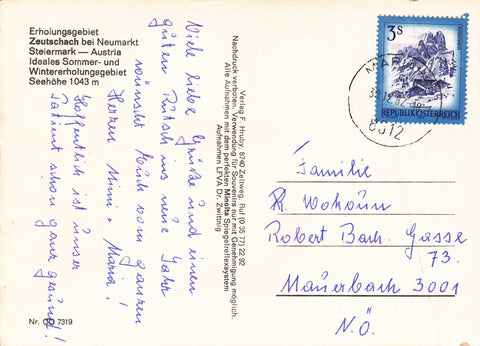 Erholungsgebiet
Zeutschach bei Neumarkt
Steiermark — Austria
Ideales Sommer- und
Wintererholungsgebiet
Seehöhe 1043 m
Viele liebe Grüße und einen
guten Rutsch ins neue Jahr
wünscht Euch vom ganzen
Herzen Mimi + Maria!
Hoffentlich ist unser
Patient schon ganz gesund!
Nr. CO 7319
Verlag F. Hruby, 8740 Zeltweg, Ruf (0 35 77) 22 92
Nachdruck verboten. Verwendung für Souvenirs nur mit Genehmigung möglich.
Alle Aufnahmen mit dem perfekten Minolta Spiegelreflexsystem
Aufnahmen LPVA Dr. Zwittnig
3S
REPUBLIK ÖSTERREICH
MARIA
8812
Familie
R. Wohaun
Robert Bach. Gasse
73.
Mauerbach 3001
N.Ö.